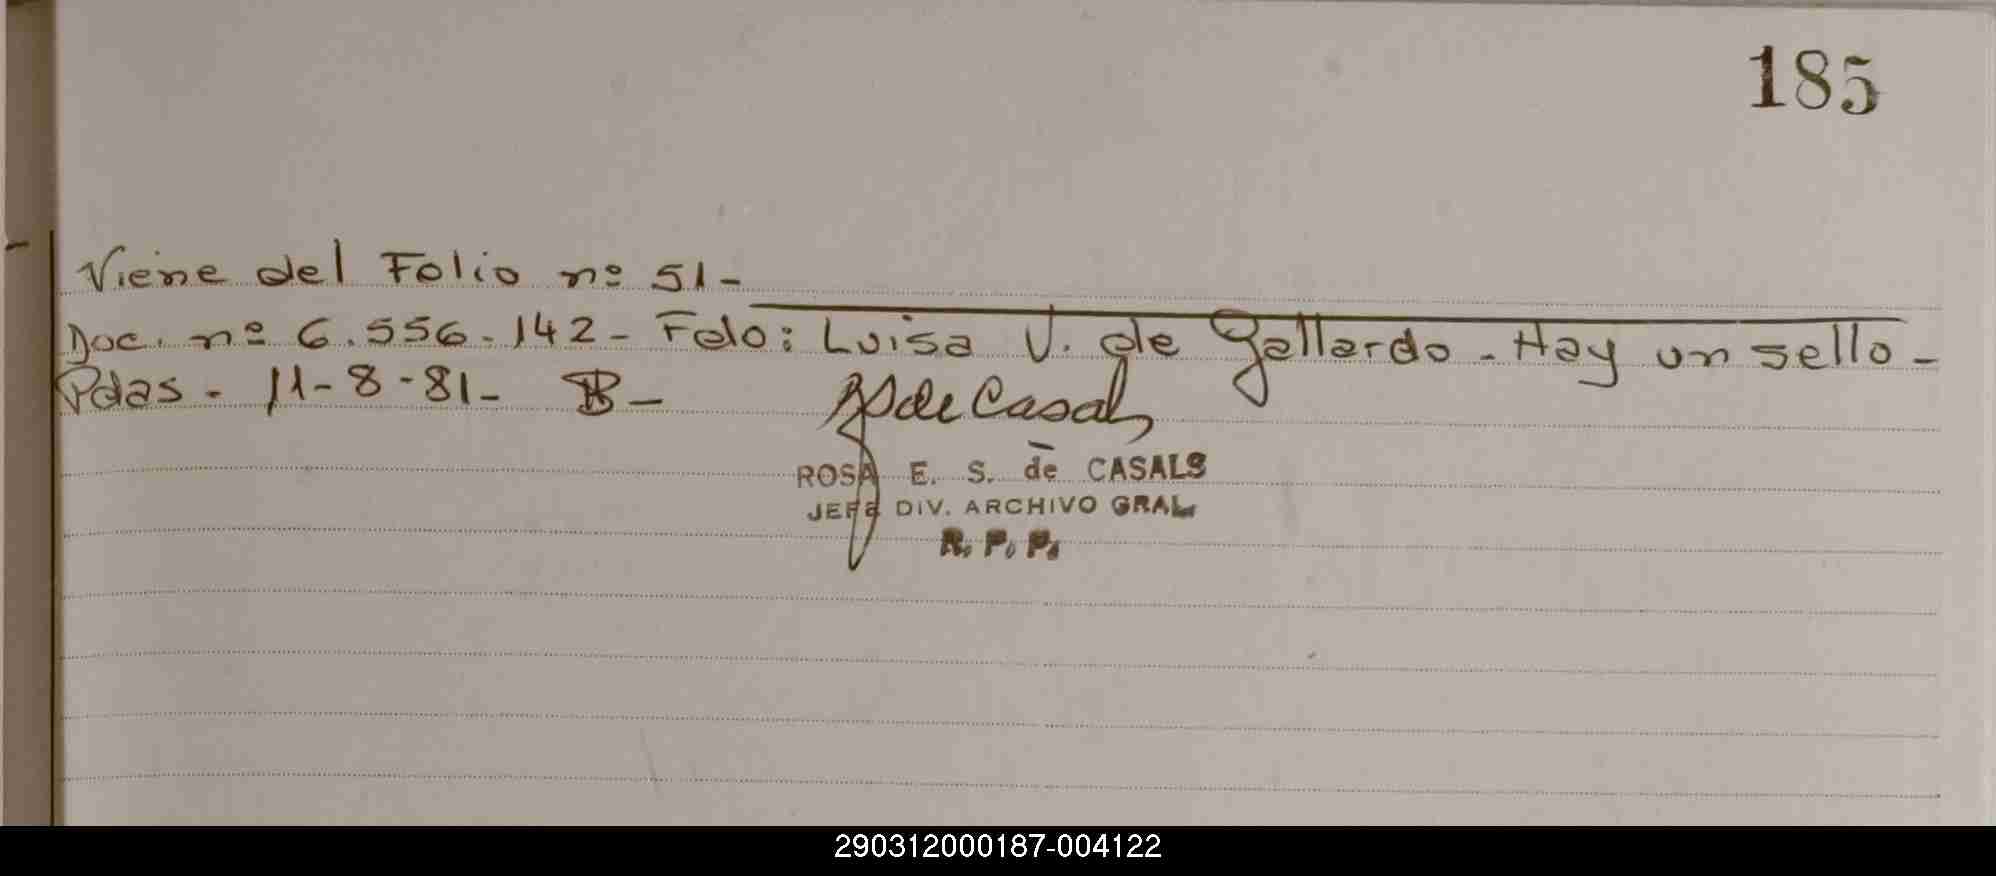 185
Viene del Folio nº 51-
Doc. nº 6.556.142- Fdo: Luisa V. de Gallardo - Hay un sello -
Pdas. 11-8-81-
de Casals
ROSA E. S. de CASALS
JEFE DIV. ARCHIVO GRAL.
R. P. P.
290312000187-004122